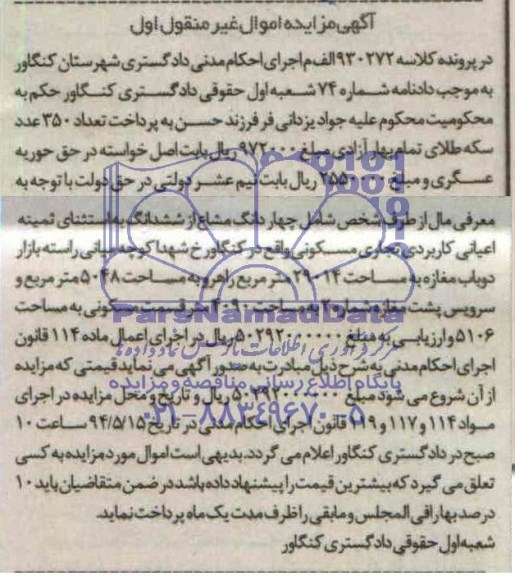 آگهی مزایده اموال غیر منقول اول
در پرونده کلاسه ۹۳۰۲۷۲ الف م اجرای احکام مدنی دادگستری شهرستان کنگاور
به موجب دادنامه شماره ۷۴ شعبه اول حقوقی دادگستری کنگاور حکم به
محکومیت محکوم علیه جواد یزدانی فر فرزند حسن به پرداخت تعداد ۳۵۰ عدد
سکه طلای تمام بهار آزادی مبلغ ۹۷۲۰۰۰ ریال بابت اصل خواسته در حق حوریه
عسگری و مبلغ ریال بابت نیم عشر دولتی در حق دولت با توجه به
معرفی مال از طرف شخص شامل چهار دانگ مشاع از ششدانگ به استثنای ثمینه
اعیانی کاربردی تجاری مسکونی واقع در کنگاور خ شهدا کوچه میانی راسته بازار
دوباب مغازه به مساحت ۲۹۰۱۴ متر مربع راهرو به مساحت ۵۰۴۸ متر مربع و
سرویس پشت مغازه شماره ۲ به مساحت ۴۰۹۰ متر قسمت مسکونی به مساحت
۵۱۰۶ و ارزیابی به مبلغ ریال در اجرای اعمال ماده ۱۱۴ قانون
اجرای احکام مدنی به شرح ذیل مبادرت به صدور آگهی می نماید قیمتی که مزایده
از آن شروع می شود مبلغ ریال و تاریخ و محل مزایده در اجرای
مواد ۱۱۴ و ۱۱۷ و ۱۱۹ قانون اجرای احکام مدنی در تاریخ ۹۴/۵/۱۵ ساعت ۱۰
صبح در دادگستری کنگاور اعلام می گردد. بدیهی است اموال مورد مزایده به کسی
تعلق می گیرد که بیشترین قیمت را پیشنهاد داده باشد در ضمن متقاضیان باید ۱۰
درصد بها را فی المجلس و مابقی را ظرف مدت یک ماه پرداخت نماید.
شعبه اول حقوقی دادگستری کنگاور
ParsNamadData
مرکز فرآوری اطلاعات پارس نماد داده ها
پایگاه اطلاع رسانی مناقصه و مزایده
۰۲۱-۸۸۳۴۹۶۷۰-۵